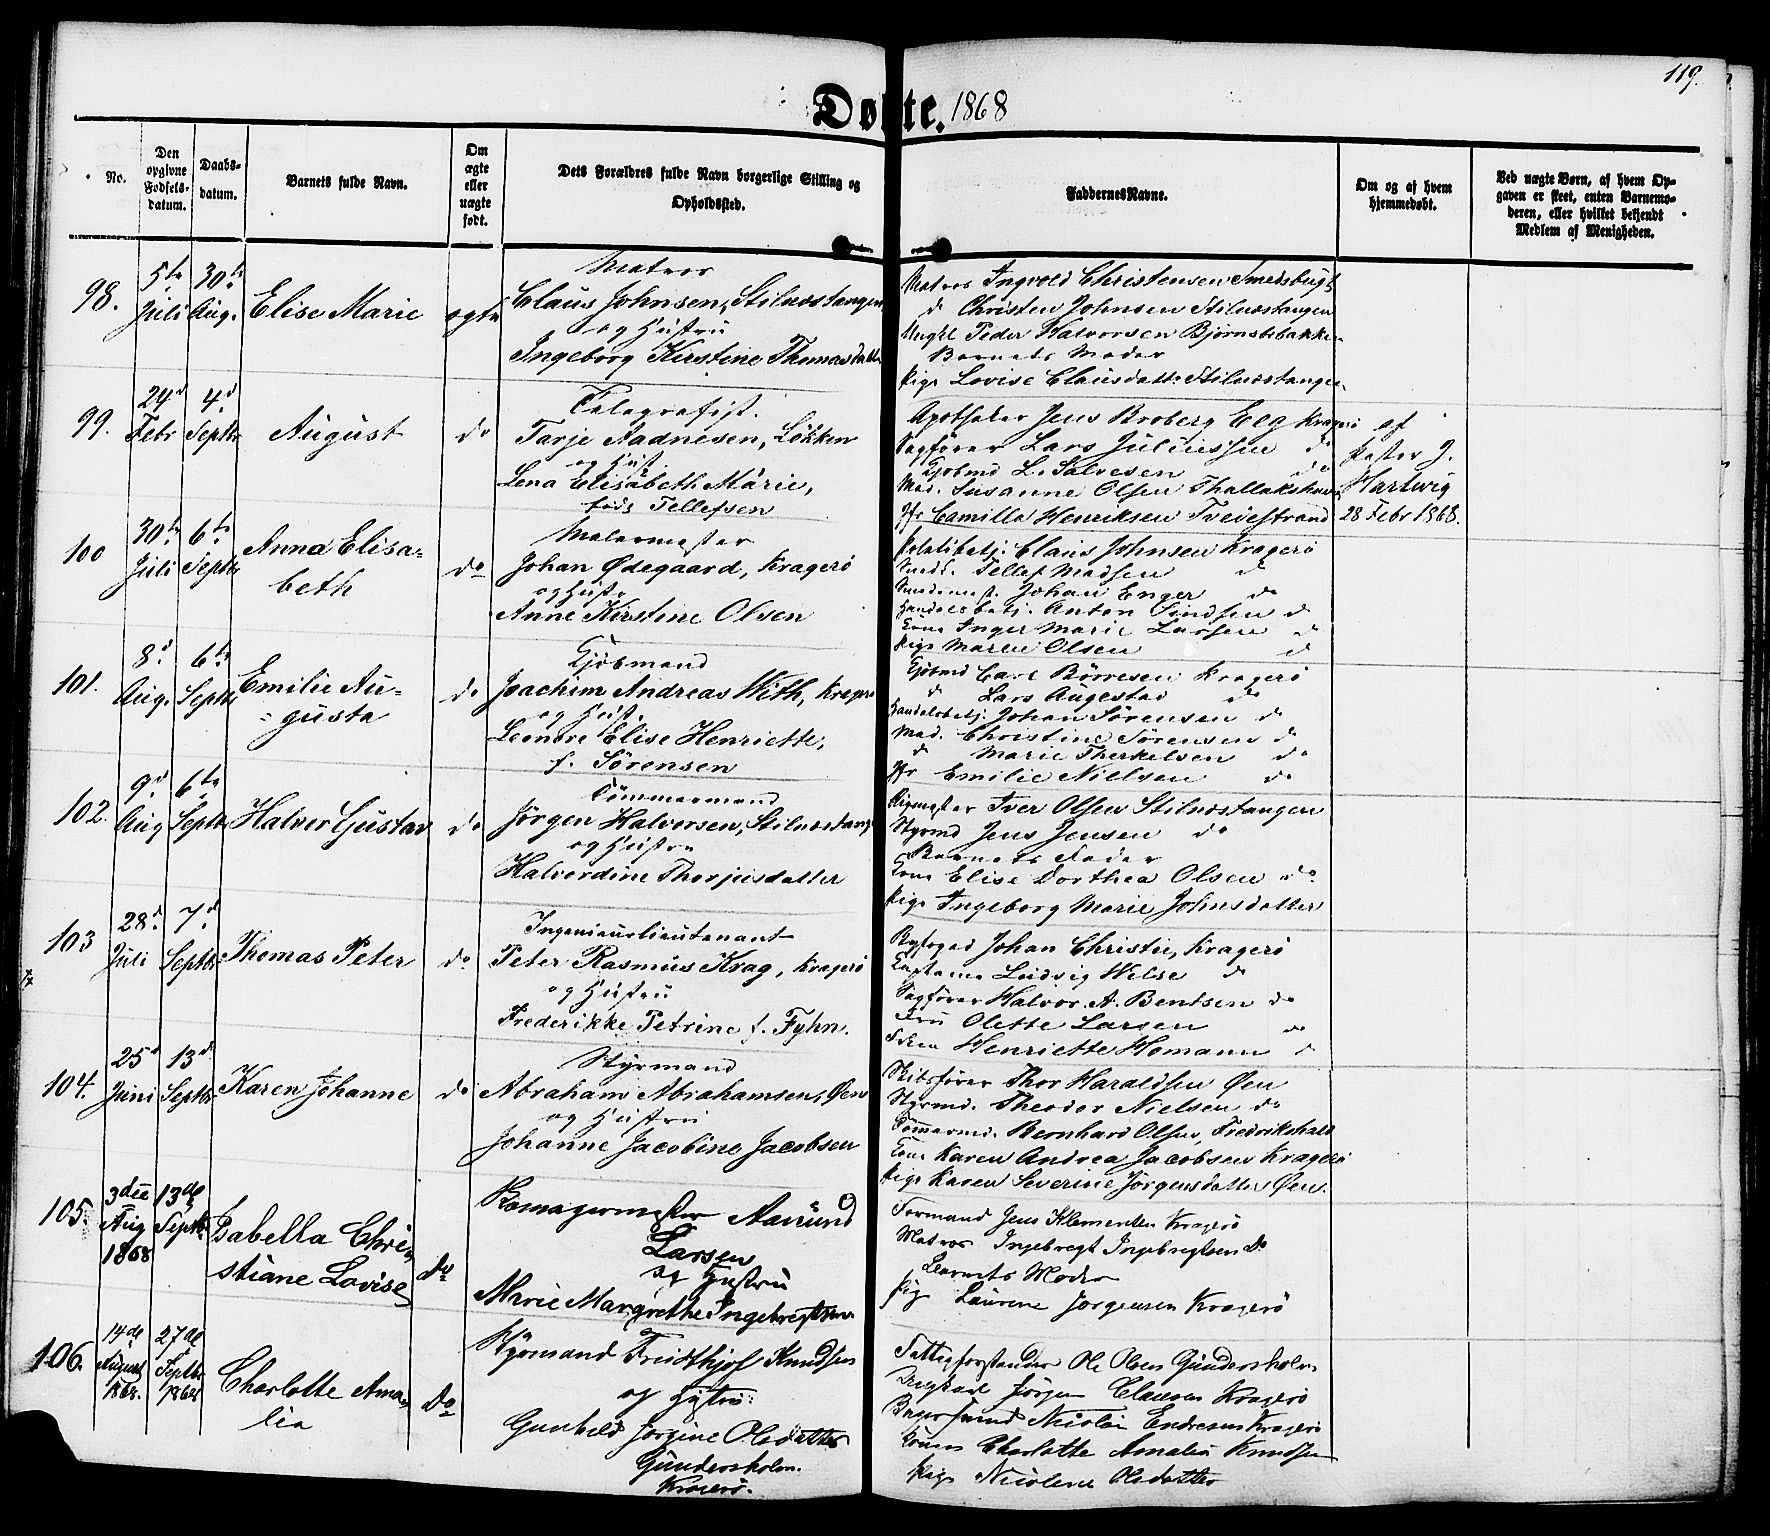 119.
Døbte. 1868
No.
Den opgivne Fødsels-datum.
Daabs-datum.
Barnets fulde Navn.
Om ægte eller uægte født.
Dets Forældres fulde Navn borgerlige Stilling og Opholdssted.
Faddernes Navne.
Om og af hvem hjemmedøbt.
Ved uægte Børn, af hvem Opgaven er skeet, enten Barnemoderen, eller hvilket bekjendt Medlem af Menigheden.
98. 5te Juli 30te Aug. Elise Marie ægte
Matros
Claus Johnsen, Stilnæstangen
og Hustru
Ingeborg Kirstine Thomasdatter
Matros Ingvold Christensen Smedsbugt
do Christen Johnsen Stilnæstangen
Ungkl Peder Halvorsen Bjørnsbakken
Barnets Moder
Pige Lovise Clausdatter Stilnæstangen
99. 29d Febr 4d Septbr August do
Telegrafist.
Tarje Aadnesen, Løkken
og Hust.
Lena Elisabeth Marie,
født Tellefsen
Apotheker Jens Broberg Elg Kragerø
Sagfører Lars Juliussen do
Kjøbmd L. Salvesen do
Mad. Susanne Olsen Thallakshavn
Jfr Camilla Henriksen Tvedestrand
af
Pastor J.
Hartwig
28 Febr 1868.
100 30te Juli 6te Septbr Anna Elisa=
beth do
Malermester
Johan Ødegaard, Kragerø
og Hustr
Anne Kirstine Olsen
Politibetj. Claus Johnsen Kragerø
Smedk. Tellef Madsen do
Smedemest. Johan Enger do
Handelsbetj. Anton Lindsen do
Kone Inger Marie Larsen do
Pige Maren Olsen do
101. 8d Aug. 6te Septbr Emilie Au=
=gusta do
Kjøbmand
Joachim Andreas With, Kragerø
og Hust.
Leonore Elise Henriette,
f. Sørensen
Kjøbmd Carl Børresen Kragerø
do Lars Augestad do
Handelsbetj. Johan Sørensen do
Mad. Christine Sørensen do
do Marie Therkelsen do
Jfr Emilie Nielsen do
102. 9d Aug 6te Septbr Halvor Gustav do
Tømmermand
Jørgen Halvorsen, Stilnæstang
og Hustru
Halvordine Thorjusdatter
Rigmester Iver Olsen Stilnæstangen
Styrmd Jens Jensen do
Barnets Fader
Kone Elise Dorthea Olsen do
Pige Ingeborg Marie Johnsdatter
103 28d Juli 7d Septbr Thomas Peter do
Ingenieurlieutenant
Peter Rasmus Krag, Kragerø
og Hustru
Frederikke Petrine f. Fyhn.
Byfoged Johan Christie, Kragerø
Captein Ludvig Wilse do
Sagfører Halvor A. Bentsen do
Fru Olette Larsen do
Frkn Henriette Homann do
104. 25d Juni 13d Septbr Karen Johanne do
Styrmand
Abraham Abrahamsen, Øen
og Hustru
Johanne Jacobine Jacobsen
Skibsfører Thor Haraldsen Øen
Styrmd. Theodor Nielsen do
Tømmermd. Bernhard Olsen, Fredrikshald
Kone Karen Andrea Jacobsen Kragerø
Pige Karen Severine Jørgensdatter Øen.
105. 3die Aug 1868 13de Septbr Isabella Chri=
stiane Lovise do
Bomagermester Aanund
Larsen
og Hustru
Marie Margrethe Ingebregtsen
Formand Jens Klementsen Kragerø
Matros Ingebregt Ingebregtsen do
Barnets Moder
Pig Laurene Jørgensen Kragerø
106. 14de August 1868. 27de Septbr 1868 Charlotte Ama=
lia Do
Styrmand Fridthjof Knudsen
og Hustru:
Gunhild Jørgine Olsdatter
Gundersholm.
Kragerø.
Fattigforstander Ole Olsen Gundersholm
Ungkarl Jørgen Clausen Kragerø
Nicolai Endresen Kragerø
Konen Charlotte Amalia Knudsen
Pige Nicoline Olsdatter